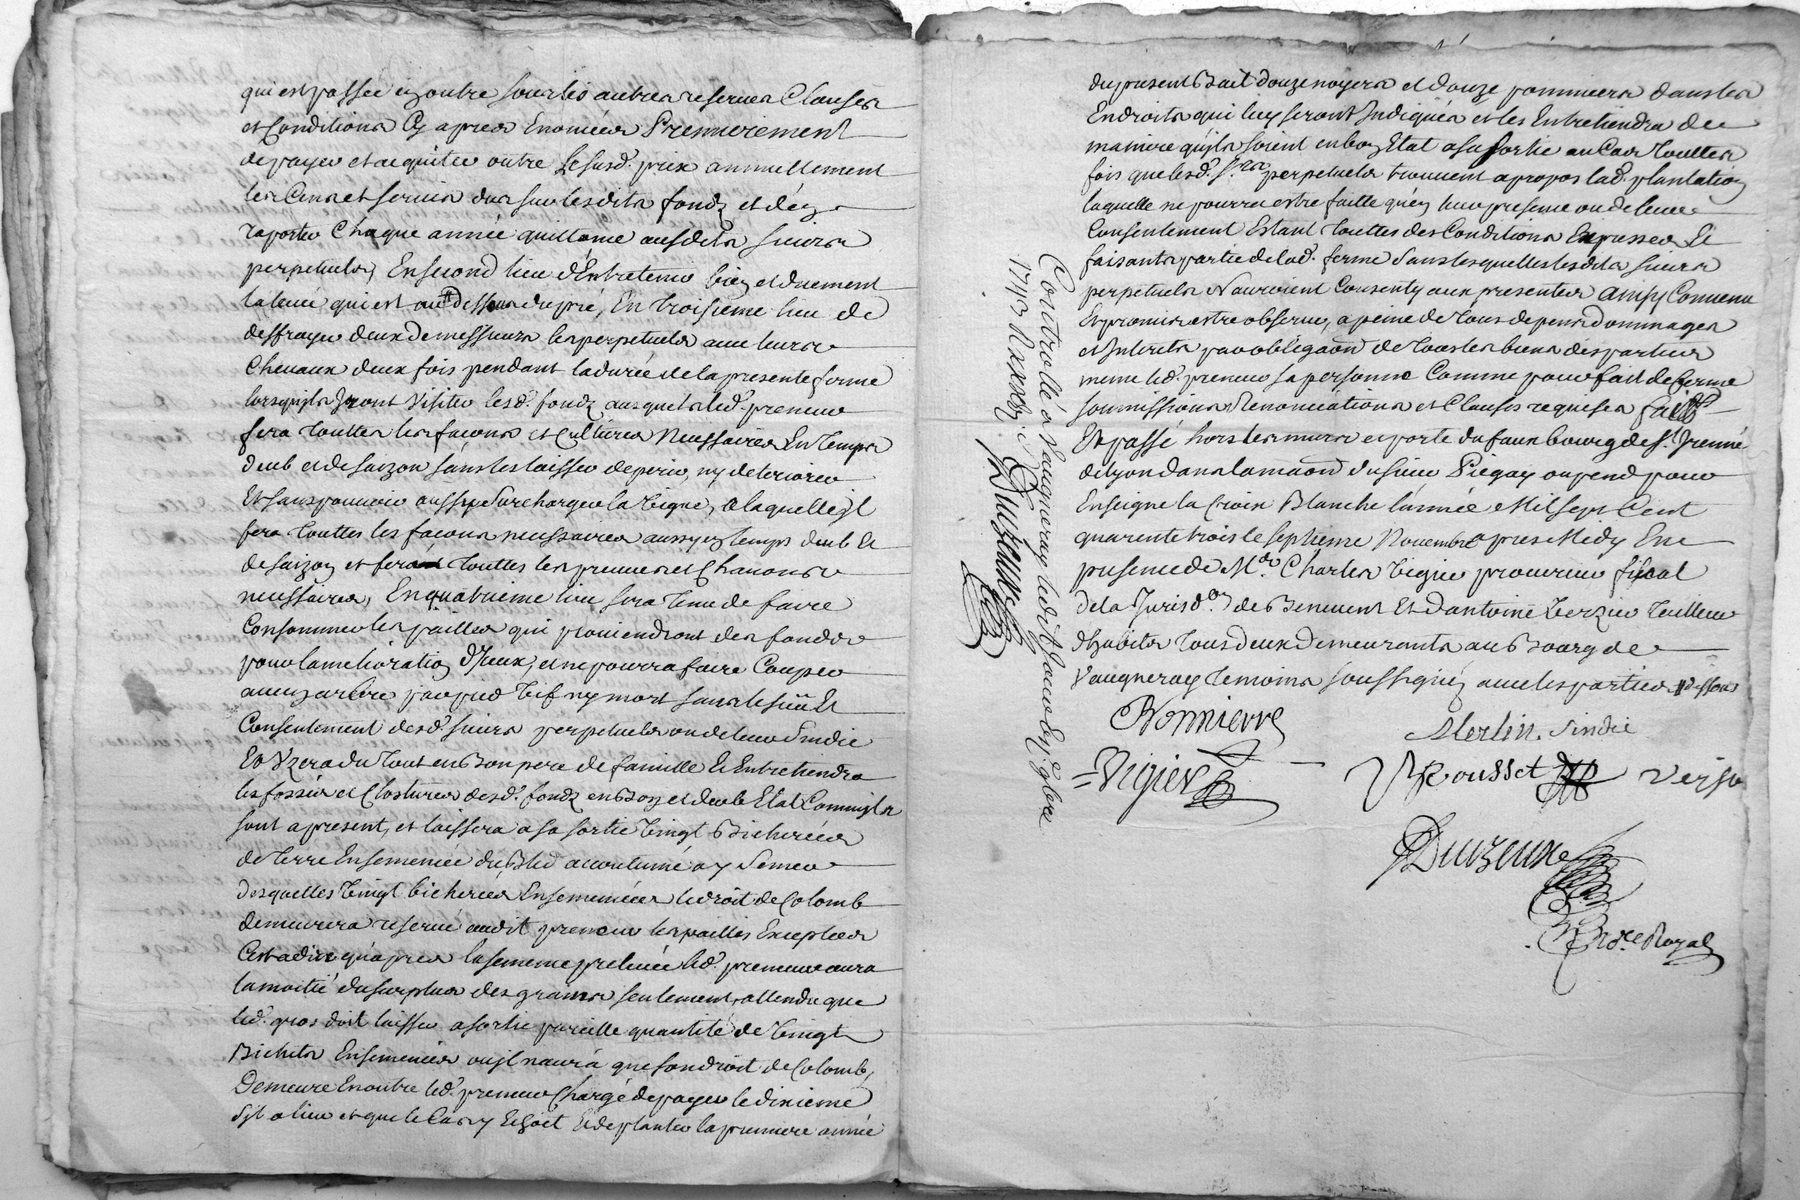 qui est passée en outre sous les autres reserves Clauses
et Conditions Cy apres Enoncées Premierement
de payer et acquiter outre Le susd. prix annuellement
les Cens et servis dus sur lesdits fonds et d'en
raporter Chaque année quittance ausdits sieurs
perpetuels, En second lieu d'Entretenir bien et duement
la levée qui est au dessous du pre, En troisieme lieu de
deffrayer deux de messieurs les perpetuels avec leurs
Chevaux deux fois pendant la durée de la presente ferme
lorsquils Jront visiter lesd. fonds ausquels led. preneur
fera touttes les façons et Cultures Necessaires En temps
deub et de saizon sans les laisser deperir, ny deteriorer
Et sans pouvoir aussy surcharger la vigne, a laquelle Jl
fera touttes les façons necessaires aussy en temps deub et
de saizon et fera touttes les
necessaires, En quatrieme lieu sera tenu de faire
Consommer les pailles qui proviendront des fonds
pour l'amelioration d'Jceux, et ne pourra faire Couper
aucun arbre par pied vif ny mort sans le sceu Et
Consentement desd. sieurs perpetuels ou de leur sindic
Et Uzera du tout en Bon pere de famille Et Entretiendra
les fossés et Clostures desd. fonds en Bon et deub Etat Comme ils
sont a present, et laissera a sa sortie vingt Bicherées
de terre Ensemencée du Bled accoutumé a y semer
desquelles vingt bicherées Ensemencées le droit de Colomb
demeurera reservé audit preneur les pailles Exceptées
Cest a dire qu'apres la semence prelevée led. preneur aura
la moitié du surplus des grains seulement, attendu que
led. gros doit laisser a sortie pareille quantité de vingt
Bichets Ensemencés ou jl n'aura que son droit de Colomb,
Demeure En outre led. preneur Chargé de payer le dixieme
s'jl a lieu et que le Cas y Echoit Et de planter la premiere année
du present Bail douze noyers et douze pommiers dans les
Endroits qui luy seront Indiqués et les Entretiendra de
maniere qu'ils soient en bon Etat a sa sortie au Cas touttes
fois que lesd. Srs perpetuels trouvent a propos lad. plantation
laquelle ne pourra estre faitte qu'en leur presence ou de leur
Consentement Estant touttes des Conditions Expresses Et
faisants partie de lad. ferme sans lesquelles lesdits sieurs
perpetuels N'auroient Consenty aux presentes ainsy Convenu
Et promis estre observé, a peine de tous depens dommages
et Interets par obligaon de tous les biens des parties
meme led. preneur sa personne Comme pour fait de ferme
soumissions Renonciations et Clauses requises fait
Et passé hors les murs et porte du faux bourg de St. Jrennée
de Lyon dans la maon du sieur Piegay ou pend pour
Enseigne la Croix Blanche l'année Mil sept Cent
quarente trois le septieme Novembre apres Midy En
presence de Mr. Charles vigier procureur fiscal
de la Jurisdon de Benevent Et d'antoine terzier tailleur
d'habits tous deux demeurants au Bourg de
Vaugneray temoins soussignés avec les parties
Bonnierre
Merlin. sindic
Vigier
Rousset
Duzeune
Nore Royal
Controllé a Vaugneray ledit Jour
1743
Duzeune